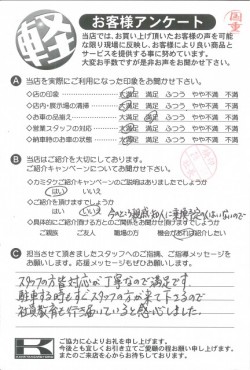 軽
お客様アンケート
当店では、お買い上げ頂いたお客様の声を可能
な限り現場に反映し、お客様により良い商品と
サービスを提供する事に努めています。
大変お手数ですが是非お声をお聞かせ下さい。
A 当店を実際にご利用になった印象をお聞かせ下さい。
◇店の印象 大満足 満足 ふつう やや不満 不満
◇店内・展示場の清掃 大満足 満足 ふつう やや不満 不満
◇お車の品揃え 大満足 満足 ふつう やや不満 不満
◇営業スタッフの対応 大満足 満足 ふつう やや不満 不満
◇納車時のお車の状態 大満足 満足 ふつう やや不満 不満
B 当店はご紹介を大切にしております。
ご紹介についてお聞かせ下さい。
◇カミタケご紹介キャンペーンのご説明はありましたでしょうか
はい いいえ
◇ご紹介を頂けますでしょうか
はい いいえ
◇具体的にご紹介頂ける方との関係をお聞かせ頂けますでしょうか
ご親族 ご友人 職場の方 機会があれば紹介したい
C 担当させて頂きましたスタッフへのご指摘、ご指導メッセージを
お願いします。応援メッセージもぜひお願いします。
スタッフの方皆対応が丁寧なので満足です。
駐車する時もすぐスタッフの方が来て下さるので
社員教育も行き届いていると感じました。
K
ご協力に心よりお礼を申し上げます。
今後とも宜しくお引き立てご愛顧の程お願い申し上げます。
またのご来店を心からお待ちしております。